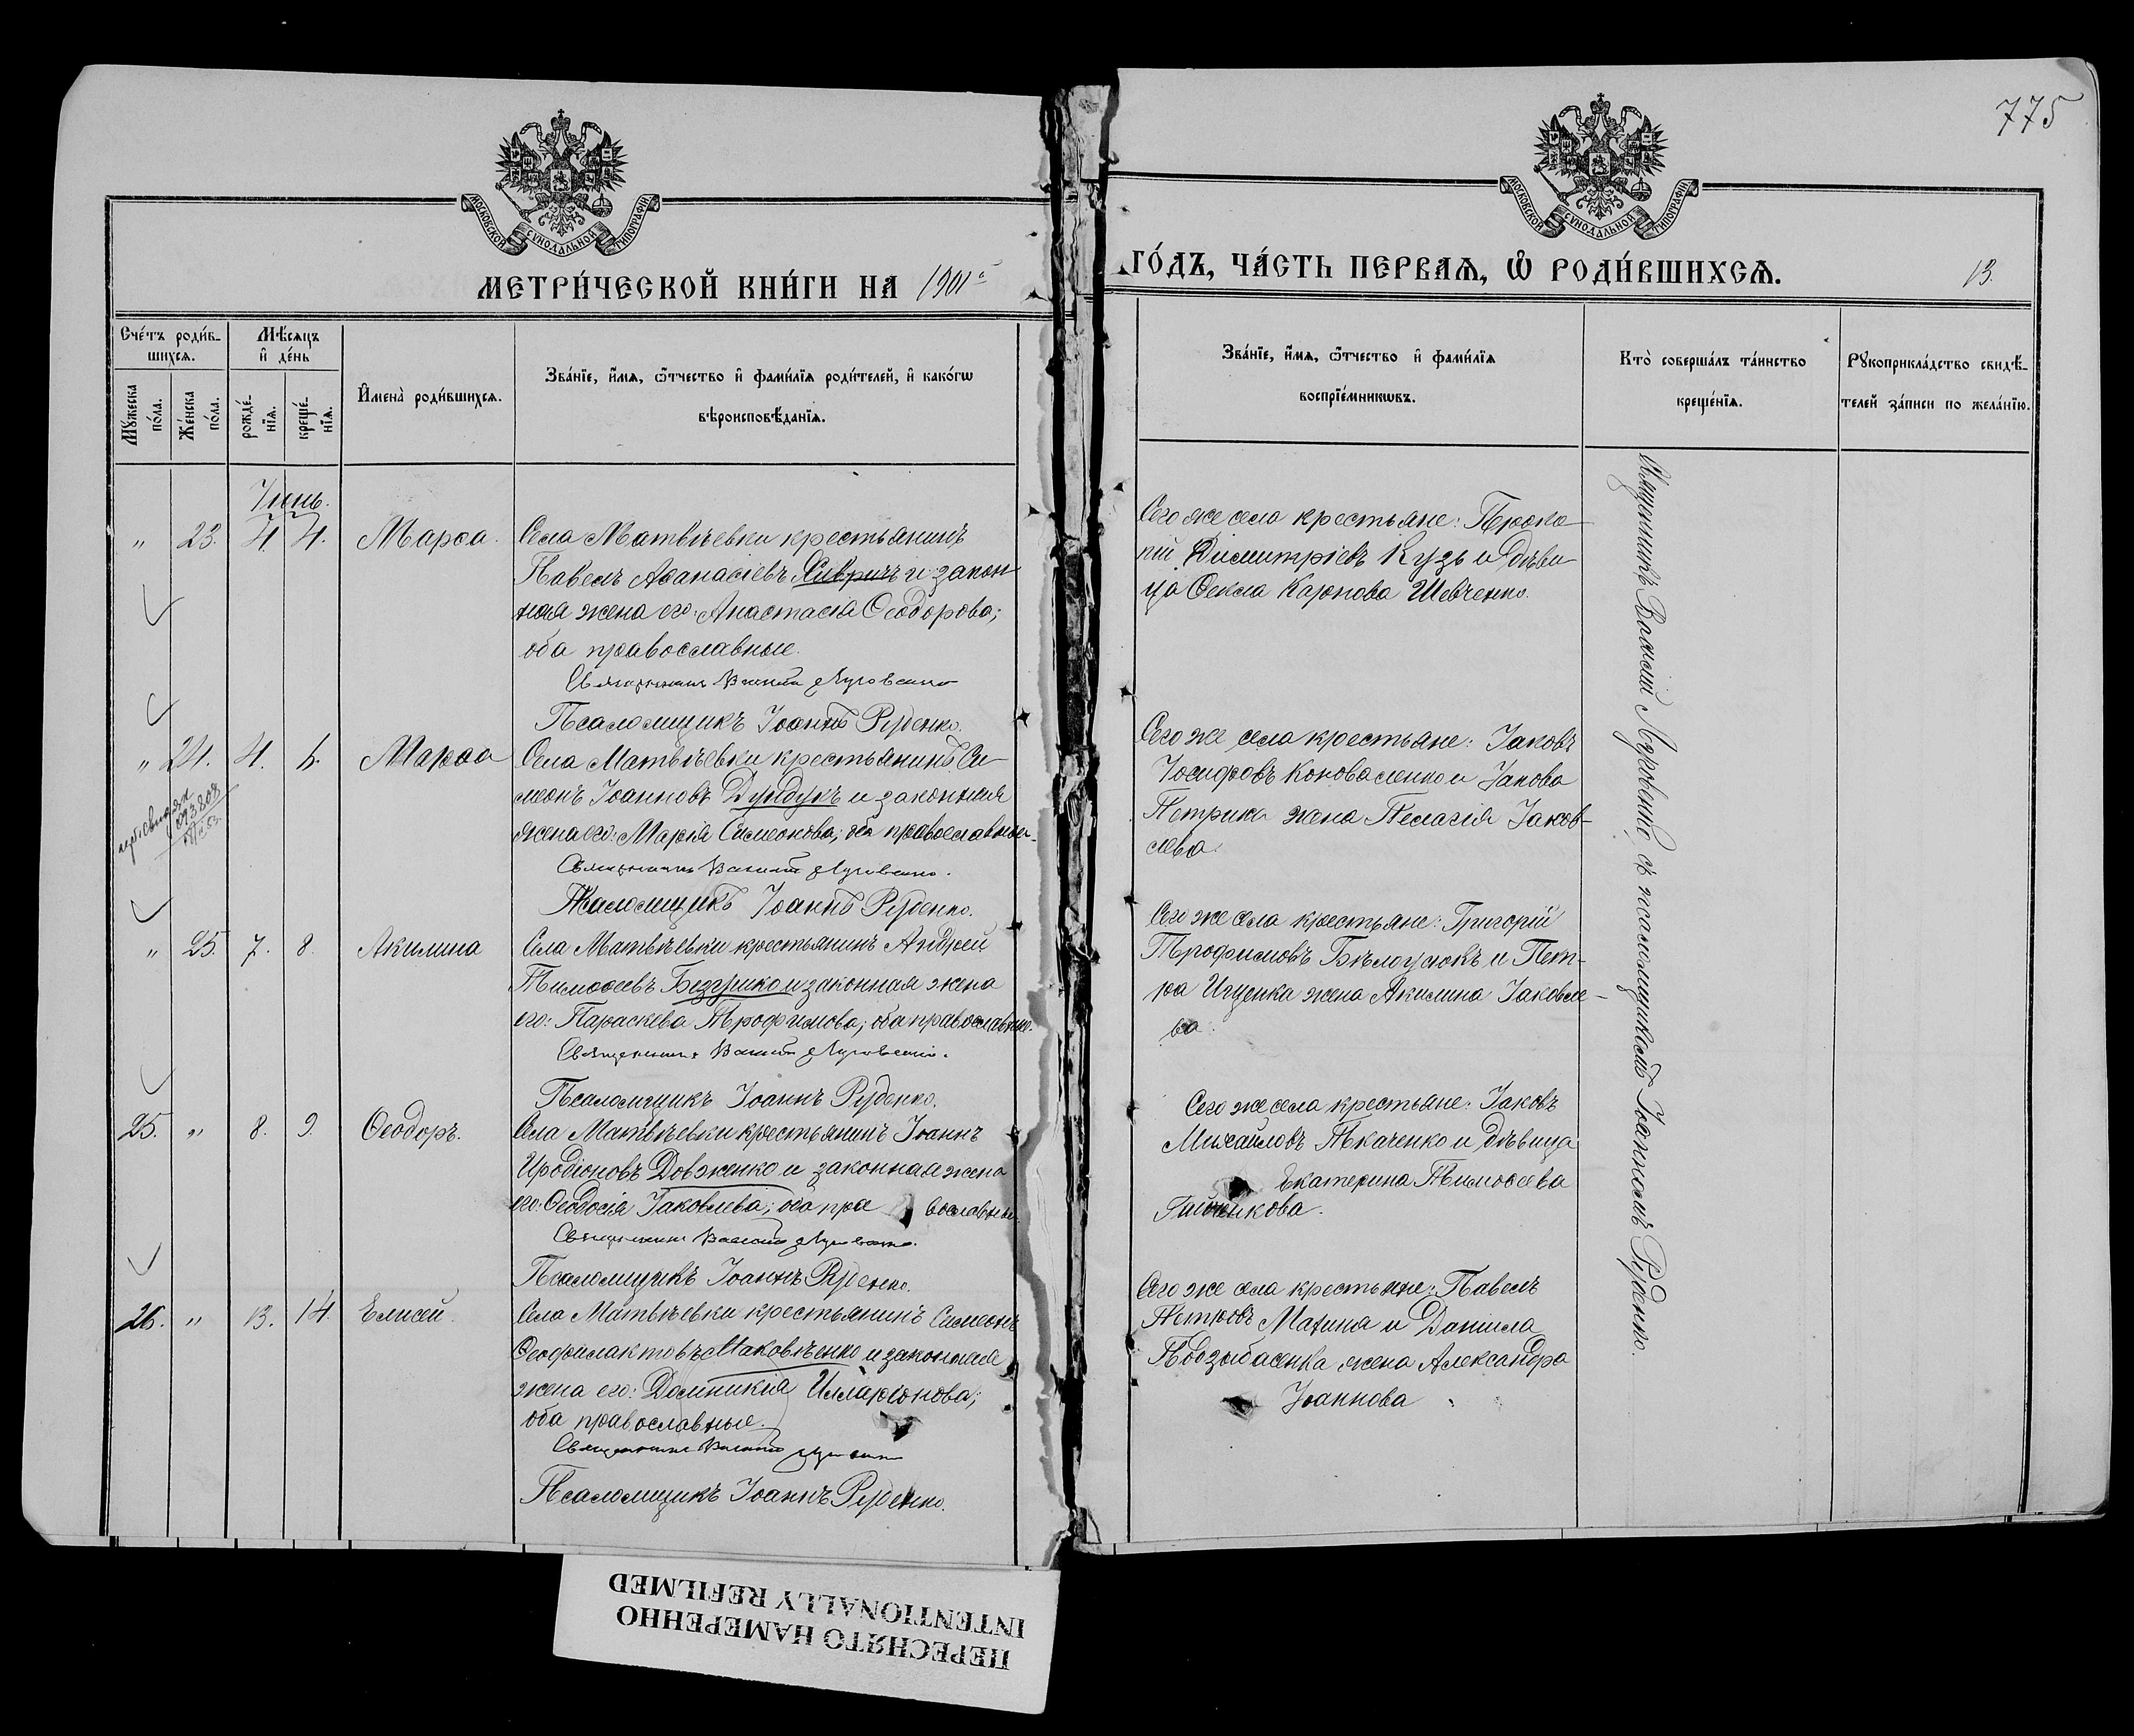 775
МОСКОВСКОЙ СѴНОДАЛЬНОЙ ТИПОГРАФІИ
МОСКОВСКОЙ СѴНОДАЛЬНОЙ ТИПОГРАФІИ
МЕТРИ́ЧЕСКОЙ КНИ́ГИ НА 1901й
ГО́ДЪ, ЧА́СТЬ ПЕРВАѦ, Ѡ҆ РОДИ́ВШИХСѦ.
13.
Сче́тъ роди́в-
шихсѧ.
Мѣ́сѧцъ
и҆ де́нь
Мꙋ́жеска
по́ла.
Же́нска
по́ла.
рожде́-
нїѧ.
креще́-
нїѧ.
И҆мена̀ роди́вшихсѧ.
Зва́нїе, и҆́мѧ, ѻ҆́тчество и҆ фами́лїѧ роди́телей, и҆ како́гѡ
вѣроисповѣ́данїѧ.
Зва́нїе, и҆́мѧ, ѻ҆́тчество и҆ фами́лїѧ
воспрїе́мникѡвъ.
Кто̀ соверша́лъ та́инство
креще́нїѧ.
Рꙋкоприкла́дство свидѣ́-
телей за́писи по жела́нїю.
Іюнь.
" 23. 4. 4. Марѳа. Села Матвѣевки крестьянинъ
Павелъ Аѳанасіевъ и закон
ная жена его: Анастасія Ѳеодорова;
оба православные.
Священникъ Василій Луговенко
Псаломщикъ Іоаннъ Руденко.
Сего же села крестьяне: Проко-
пій Димитріевъ Кузь и дѣви-
ца Ѳекла Карпова Шевченко.
" 24. 4. 6. Марѳа Села Матвѣевки крестьянинъ Си-
меонъ Іоанновъ Дундукъ и законная
жена его: Марія Симеонова; оба православные.
Священникъ Василій Луговенко.
Псаломщикъ Іоаннъ Руденко.
Сего же села крестьяне: Іаковъ
Іосифовъ Коноваленко и Іакова
Петрика жена Пелагія Іаков-
лева.
" 25. 7. 8. Акилина Села Матвѣевки крестьянинъ Андрей
Тимоѳеевъ Безгушко и законная жена
его: Параскева Трофимова; оба православные.
Священникъ Василій Луговенко.
Псаломщикъ Іоаннъ Руденко.
Сего же села крестьяне: Григорій
Трофимовъ Бѣлоусюкъ и Пет-
ра Ищенка жена Акилина Іаковле-
ва.
25. " 8. 9. Ѳеодоръ. Села Матвѣевки крестьянинъ Іоаннъ
Иродіоновъ Довженко и законная жена
его: Ѳеодосія Іаковлева; оба пра вославные.
Священникъ Василій Луговенко.
Псаломщикъ Іоаннъ Руденко.
Сего же села крестьяне: Іаковъ
Михайловъ Ткаченко и дѣвица
Екатерина Тимоѳеева
26. " 13. 14. Елисей. Села Матвѣевки крестьянинъ Симеонъ
Ѳеофилактовъ Маковѣенко и законная
жена его: Домникія Илларіонова;
оба православные.
Священникъ Василій Луговенко
Псаломщикъ Іоаннъ Руденко.
Сего же села крестьяне: Павелъ
Петровъ Махиня и Даніила
Подзыбасенка жена Александра
Іоаннова
Священникъ Василій Луговенко, съ псаломщикомъ Іоанномъ Руденко.
ПЕРЕСНЯТО НАМЕРЕННО
INTENTIONALLY REFILMED